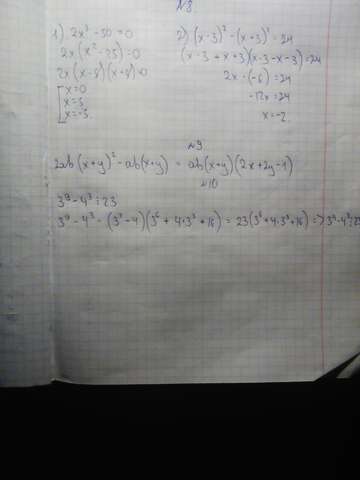 №8
1) 2x³ - 50 = 0
2x(x² - 25) = 0
2x(x-5)(x+5)=0
x=0
x=5
x=-5.
2) (x-3)² - (x+3)² = 24
(x-3+x+3)(x-3-x-3)=24
2x·(-6)=24
-12x=24
x=-2.
№9
2ab(x+y)² - ab(x+y) = ab(x+y)(2x+2y-1)
№10
3⁹ - 4³ ⋮ 23
3⁹ - 4³ = (3³-4)(3⁶ + 4·3³ + 16) = 23(3⁶+4·3³+16) => 3⁹-4³⋮23